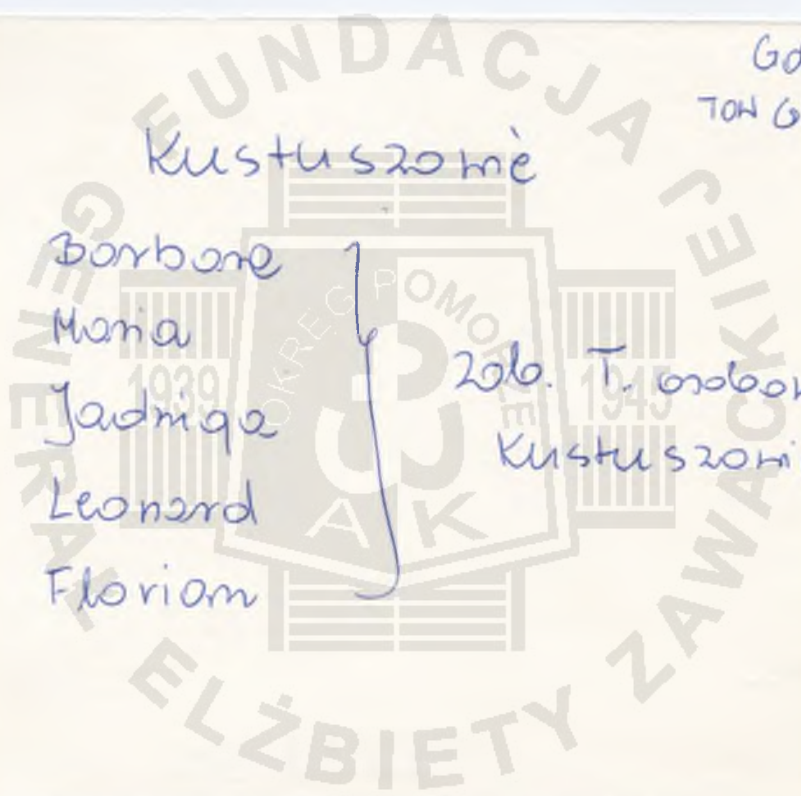 GO
TOW G
Kustuszowie
Barbara
Maria
Jadwiga
Leonard
Florian
zob. T. osobow
Kustuszowi
FUNDACJA GENERAŁ ELŻBIETY ZAWACKIEJ
OKRĘG POMORZE
1939
1945
AK